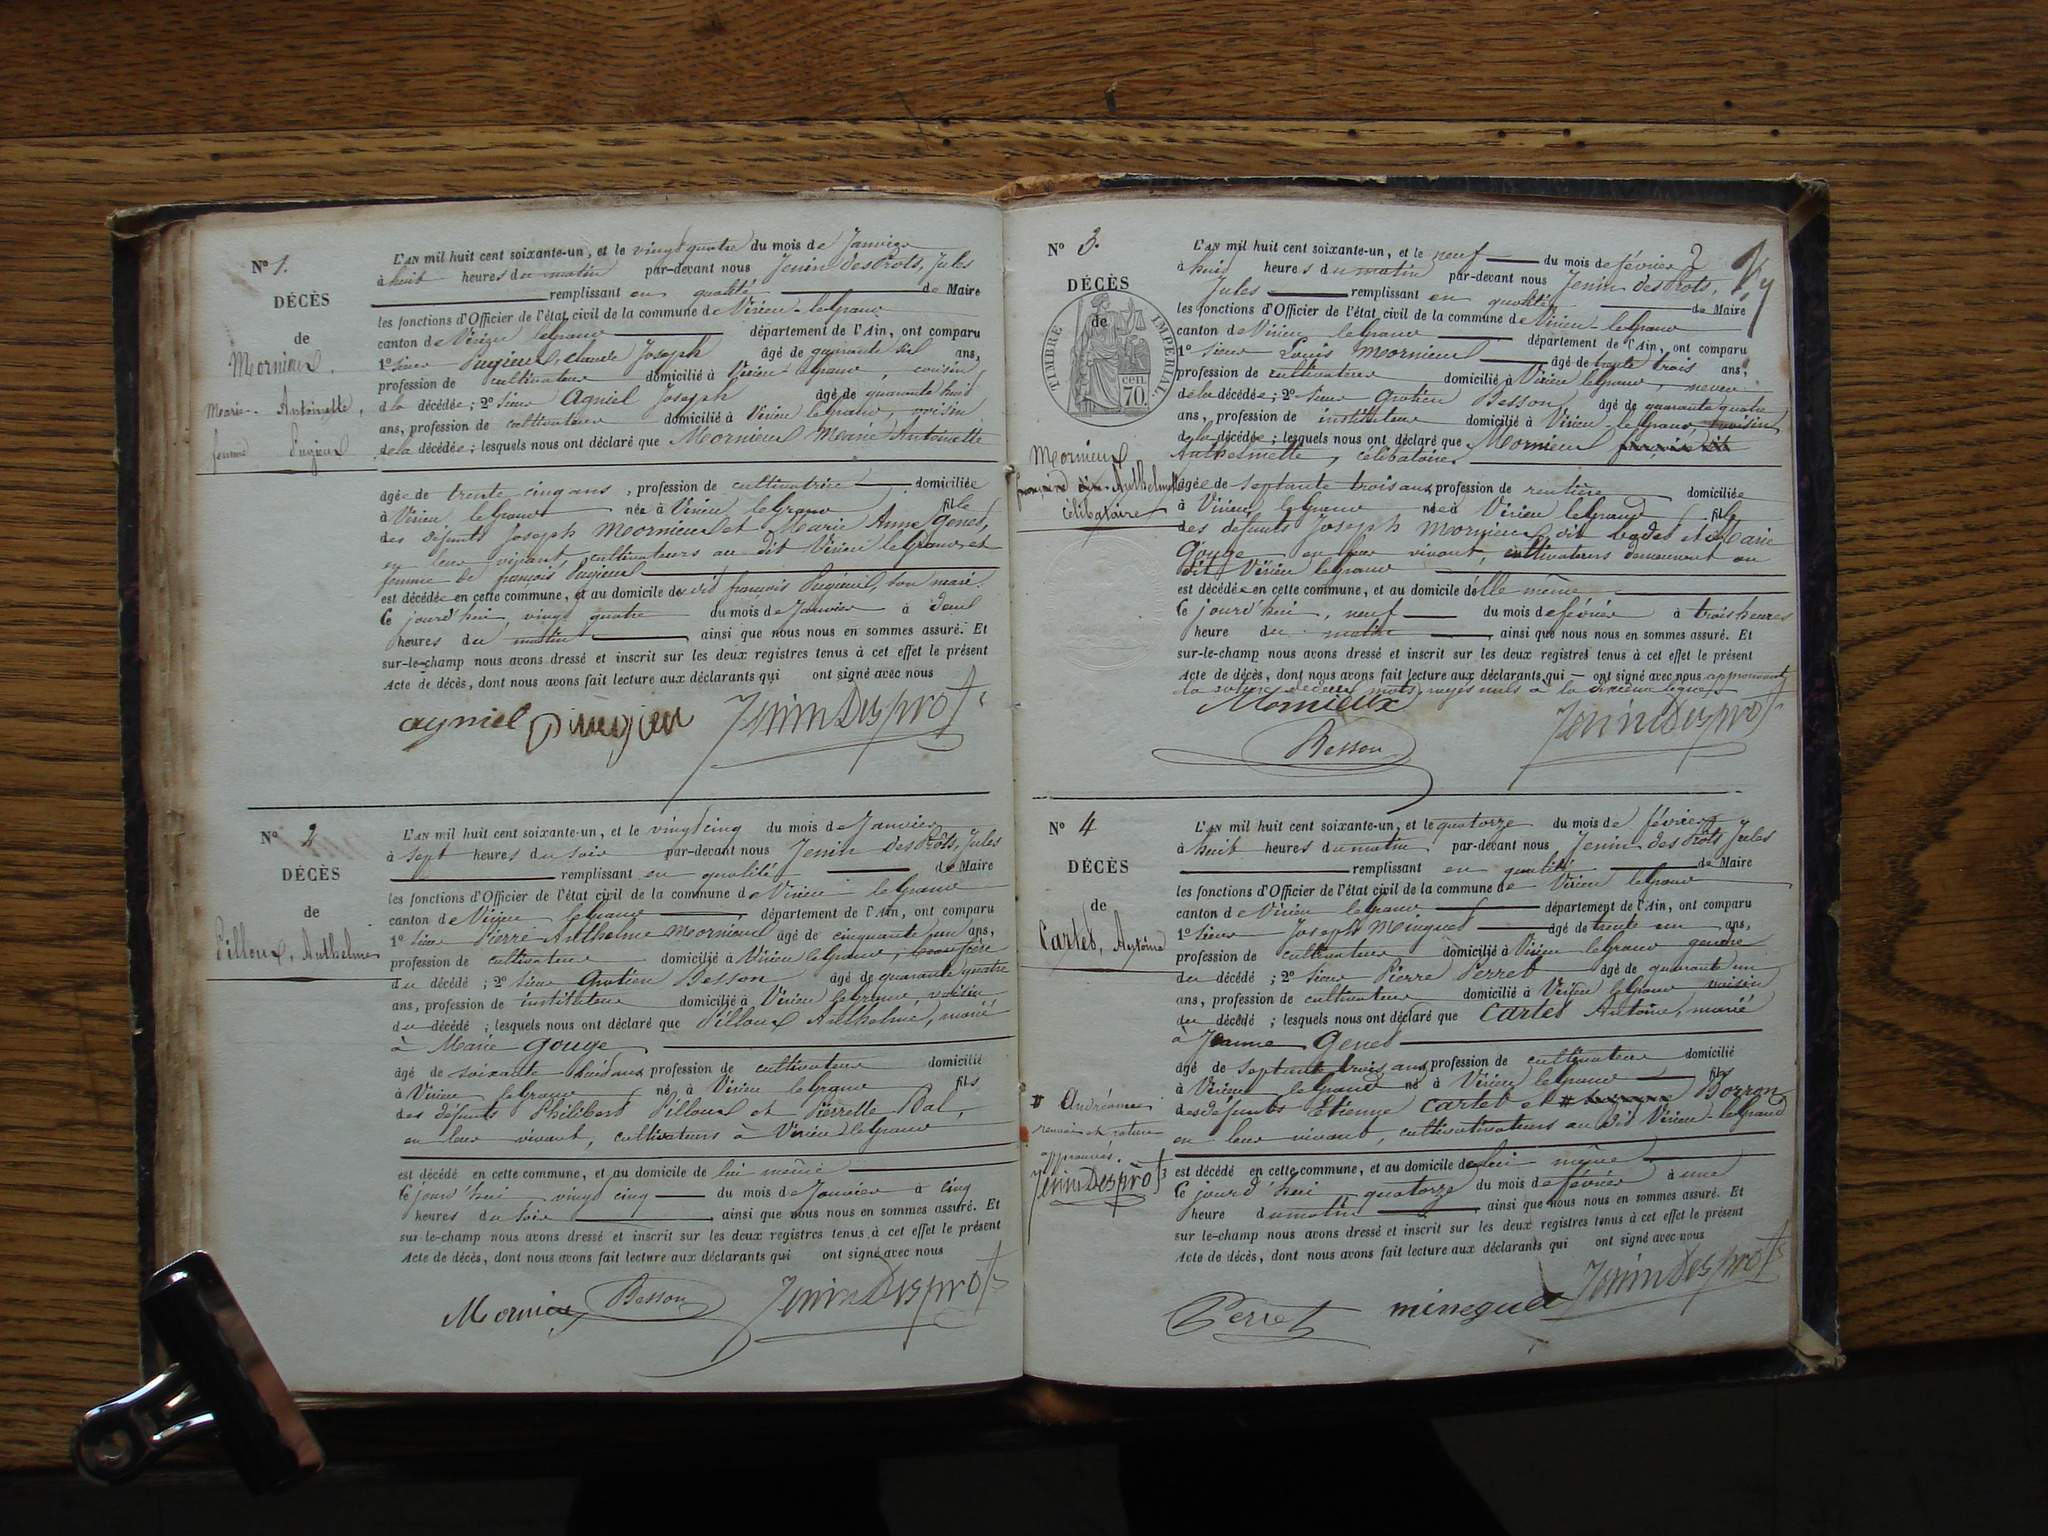 N° 1.
DÉCÈS
de
Mornieux,
Marie-Antoinette,
femme Pugieux
L'AN mil huit cent soixante-un, et le vingt quatre du mois de Janvier
à huit heures du matin par-devant nous Jenin desProts, Jules
remplissant en qualité de Maire
les fonctions d'Officier de l'état civil de la commune de Virieu-legrand
canton de Virieu legrand département de l'Ain, ont comparu
1° sieur Pugieux, Claude Joseph âgé de quarante six ans,
profession de cultivateur domicilié à Virieu-legrand, cousin
de la décédée; 2° sieur Agniel Joseph âgé de quarante huit
ans, profession de cultivateur domicilié à Virieu legrand, voisin
de la décédée; lesquels nous ont déclaré que Mornieux Marie Antoinette
âgée de trente cinq ans, profession de cultivatrice domiciliée
à Virieu legrand née à Virieu legrand fille
des défunts Joseph Mornieux et Marie Anne Genet,
en leur vivant, cultivateurs au dit Virieu legrand et
femme de françois Pugieux
est décédée en cette commune, et au domicile du dit françois Pugieux, son mari.
Ce jourd'hui, vingt quatre du mois de Janvier à deux
heures du matin ainsi que nous nous en sommes assuré. Et
sur-le-champ nous avons dressé et inscrit sur les deux registres tenus à cet effet le présent
Acte de décès, dont nous avons fait lecture aux déclarants qui ont signé avec nous
agniel Pugieu JeninDesprots
N° 2
DÉCÈS
de
Pilloux, Anthelme
L'AN mil huit cent soixante-un, et le vingt cinq du mois de Janvier
à sept heures du soir par-devant nous Jenin desProts, Jules
remplissant en qualité de Maire
les fonctions d'Officier de l'état civil de la commune de Virieu legrand
canton de Virieu legrand département de l'Ain, ont comparu
1° sieur Pierre Anthelme Mornieux âgé de cinquante un ans,
profession de cultivateur domicilié à Virieu legrand, beau frère
du décédé; 2° sieur Gratien Besson âgé de quarante quatre
ans, profession de instituteur domicilié à Virieu legrand, voisin
du décédé; lesquels nous ont déclaré que Pilloux Anthelme, marié
à Marie Gouge
âgé de soixante huit ans profession de cultivateur domicilié
à Virieu legrand né à Virieu legrand fils
des défunts Philibert Pilloux et Pierrette Bal,
en leur vivant, cultivateurs à Virieu legrand
est décédé en cette commune, et au domicile de lui même
Ce jourd'hui, vingt cinq du mois de Janvier à cinq
heures du soir ainsi que nous nous en sommes assuré. Et
sur-le-champ nous avons dressé et inscrit sur les deux registres tenus à cet effet le présent
Acte de décès, dont nous avons fait lecture aux déclarants qui ont signé avec nous
Mornieu Besson JeninDesprots
N° 3.
DÉCÈS
de
TIMBRE IMPERIAL
70 cen
Mornieux
Anthelmette
célibataire
L'AN mil huit cent soixante-un, et le neuf du mois de février
à huit heures du matin par-devant nous Jenin desProts,
Jules remplissant en qualité de Maire
les fonctions d'Officier de l'état civil de la commune de Virieu-legrand
canton de Virieu legrand département de l'Ain, ont comparu
1° sieur Louis Mornieux âgé de trente trois ans,
profession de cultivateur domicilié à Virieu legrand, neveu
de la décédée; 2° sieur Gratien Besson âgé de quarante quatre
ans, profession de instituteur domicilié à Virieu-legrand voisin
de la décédée; lesquels nous ont déclaré que Mornieux
Anthelmette, célibataire
âgée de septante trois ans profession de rentière domiciliée
à Virieu legrand née à Virieu legrand fille
des défunts Joseph Mornieux, dit et Marie
Gouge en leur vivant, cultivateurs demeurant au
dit Virieu legrand
est décédée en cette commune, et au domicile d'elle même
Ce jourd'hui, neuf du mois de février à trois heures
heure du matin ainsi que nous nous en sommes assuré. Et
sur-le-champ nous avons dressé et inscrit sur les deux registres tenus à cet effet le présent
Acte de décès, dont nous avons fait lecture aux déclarants qui ont signé avec nous approuvant
la rature de deux mots rayés nuls à la dixième ligne
Mornieux JeninDesprots
Besson
N° 4
DÉCÈS
de
Cartet, Antoine
# Andréanne
renvoi et rature
approuvés.
JeninDesprots
L'AN mil huit cent soixante-un, et le quatorze du mois de février
à huit heures du matin par-devant nous Jenin, desProts Jules
remplissant en qualité de Maire
les fonctions d'Officier de l'état civil de la commune de Virieu legrand
canton de Virieu legrand département de l'Ain, ont comparu
1° sieur Joseph Minguet âgé de trente un ans,
profession de cultivateur domicilié à Virieu legrand gendre
du décédé; 2° sieur Pierre Perret âgé de quarante un
ans, profession de cultivateur domicilié à Virieu legrand voisin
du décédé; lesquels nous ont déclaré que Cartet Antoine, marié
à Jeanne Genet
âgé de septante trois ans profession de cultivateur domicilié
à Virieu legrand né à Virieu legrand fils
des défunts Etienne Cartet et # Borron
en leur vivant, cultivateurs au dit Virieu-legrand
est décédé en cette commune, et au domicile de lui même
Ce jourd'hui quatorze du mois de février à une
heure du matin ainsi que nous nous en sommes assuré. Et
sur-le-champ nous avons dressé et inscrit sur les deux registres tenus à cet effet le présent
Acte de décès, dont nous avons fait lecture aux déclarants qui ont signé avec nous
Perret minguet JeninDesprots